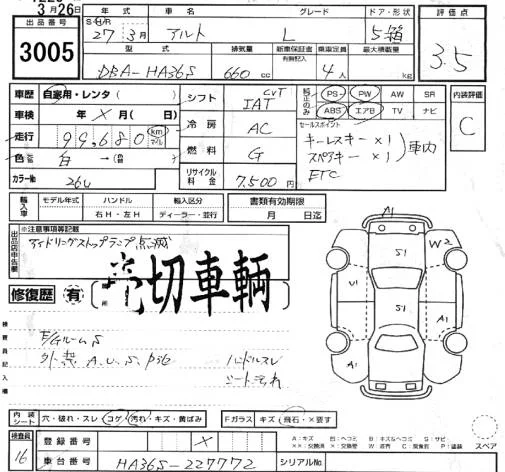 3月26日
出品番号
3005
年式 車名 グレード ドア・形状 評価点
S・H/R 27年 3月 アルト L 5箱 3.5
型式 排気量 新車保証書 乗車定員 最大積載量
有無記入
DBA-HA36S 660 cc 4人 kg
車歴 自家用・レンタ( )
シフト CVT IAT
純正のみ PS PW AW SR
ABS エアB TV ナビ
内装評価
C
車検 年 × 月( 日)
冷房 AC
セールスポイント
キーレスキー ×1
スペアキー ×1 車内
ETC
走行 99,680 km マイル
燃料 G
色 白 →(
リサイクル料金 7,500円
カラーNo 26U
輸入車 モデル年式 ハンドル 輸入区分
右H・左H ディーラー・並行
書類有効期限
月 日迄
出品店申告欄 ※注意事項等記載
アイドリングストップランプ点滅
売切車輌
修復歴 有
A1
S1
W2
U1
S1
A1
A1
検査員記入欄
E/GルームS
外装 A.U.S.P36 ハンドルスレ
シート汚れ
内装シート 穴・破れ・スレ コゲ・汚れ・キズ・黄ばみ
Fガラス キズ・飛石・×要す
A:キズ
スペア
検査員
16
登録番号 ×
車台番号 HA36S-227772 シリアルNo